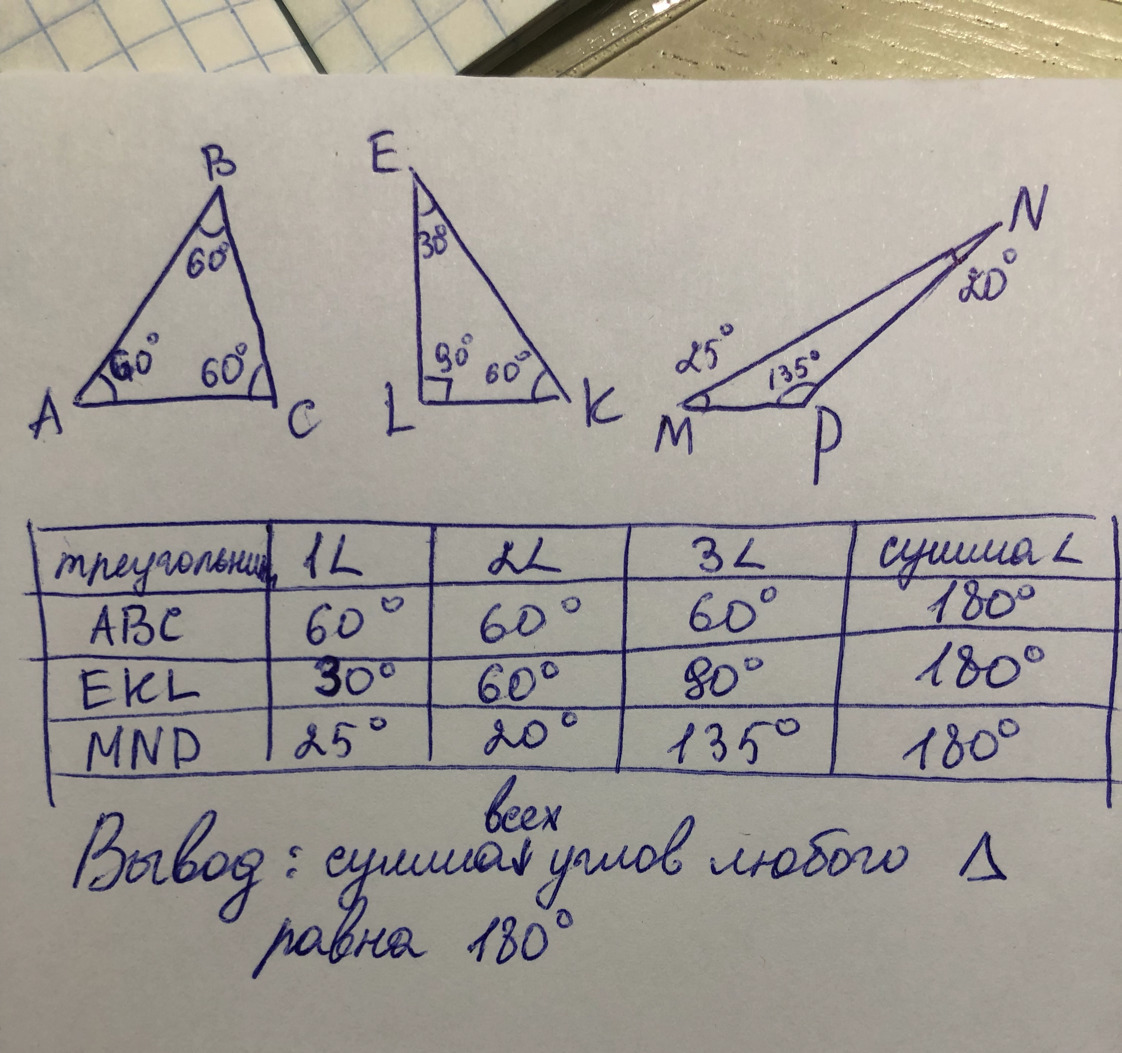 B
E
N
60°
30°
20°
60°
60°
90°
60°
25°
135°
A
C
L
K
M
P
треугольник 1L 2L 3L сумма L
ABC 60° 60° 60° 180°
EKL 30° 60° 90° 180°
MNP 25° 20° 135° 180°
всех
Вывод: сумма углов любого Δ
равна 180°